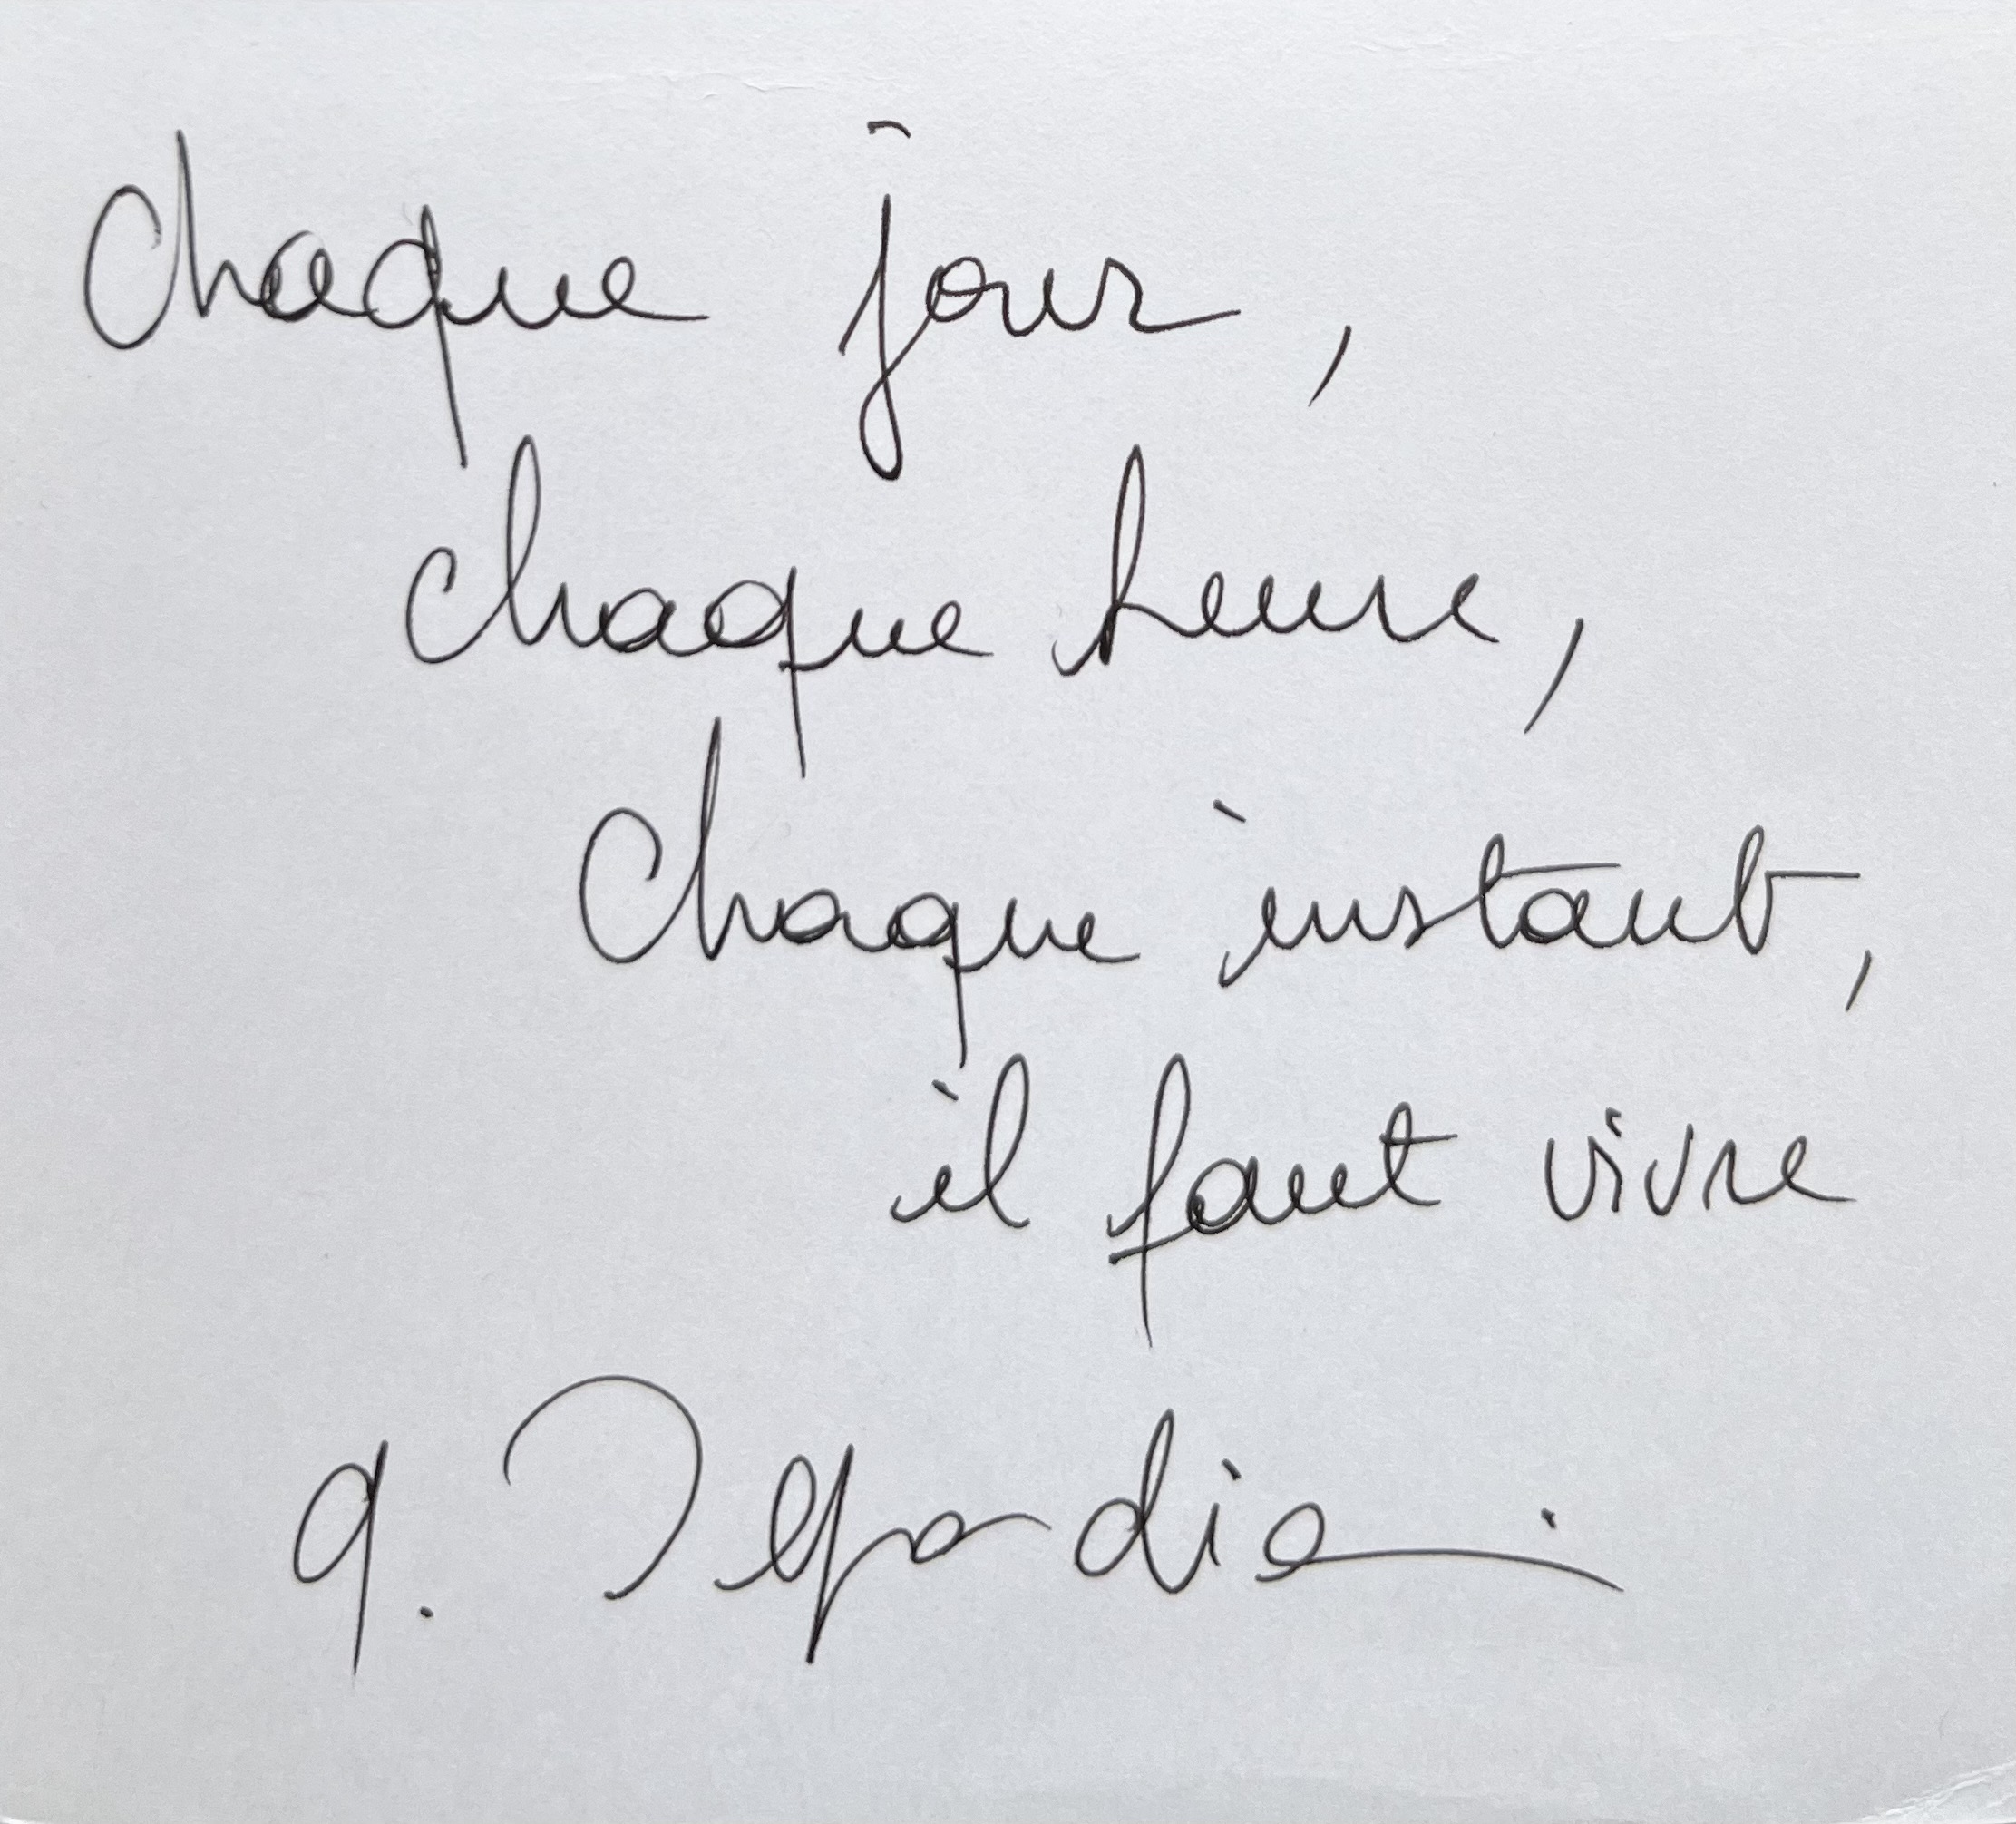 Chaque jour,
chaque heure,
Chaque instant,
il faut vivre